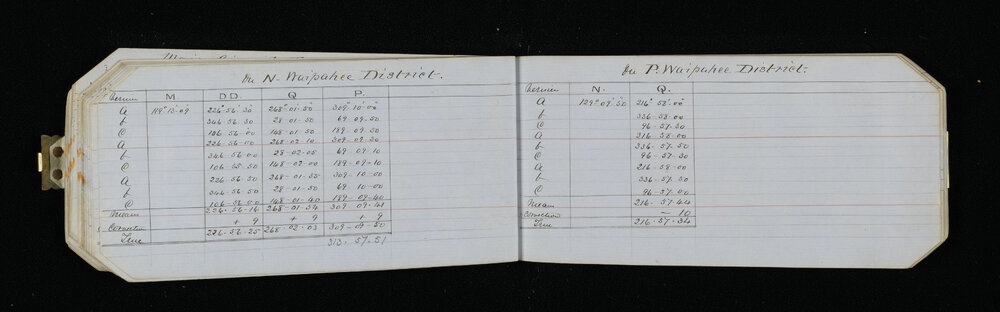 On N. Waipahee District.
Vernier M DD. Q P.
A 119° 13' 09 226° 56' 30 268° 01' 50 309° 10' 00
b 346 56 30 28 01 50 69 09 50
C 106 56 00 148 01 50 189 09 50
A 226 56 00 268 02 10 309 09 30
b 346 56 00 28 02 05 69 09 10
C 106 55 50 148 02 00 189 09 10
A 226 56 50 268 01 55 309 10 00
b 346 56 50 28 01 50 69 10 00
C 106 56 00 148 01 40 189 09 40
Mean 226.56.16 268.01.54 309 09 41
Correction + 9 + 9 + 9
True 226.56.25 268.02.03 309-09-50
313. 57. 51
On P. Waipahee District.
Vernier N. Q.
A 129° 09' 50 216° 58' 00
b 336 58 00
C 96 57 30
A 216 58 00
b 336 57 50
C 96 57 30
A 216 58 00
b 336 57 30
C 96 57 00
Mean 216.57.44
Correction — 10
True 216.57.34